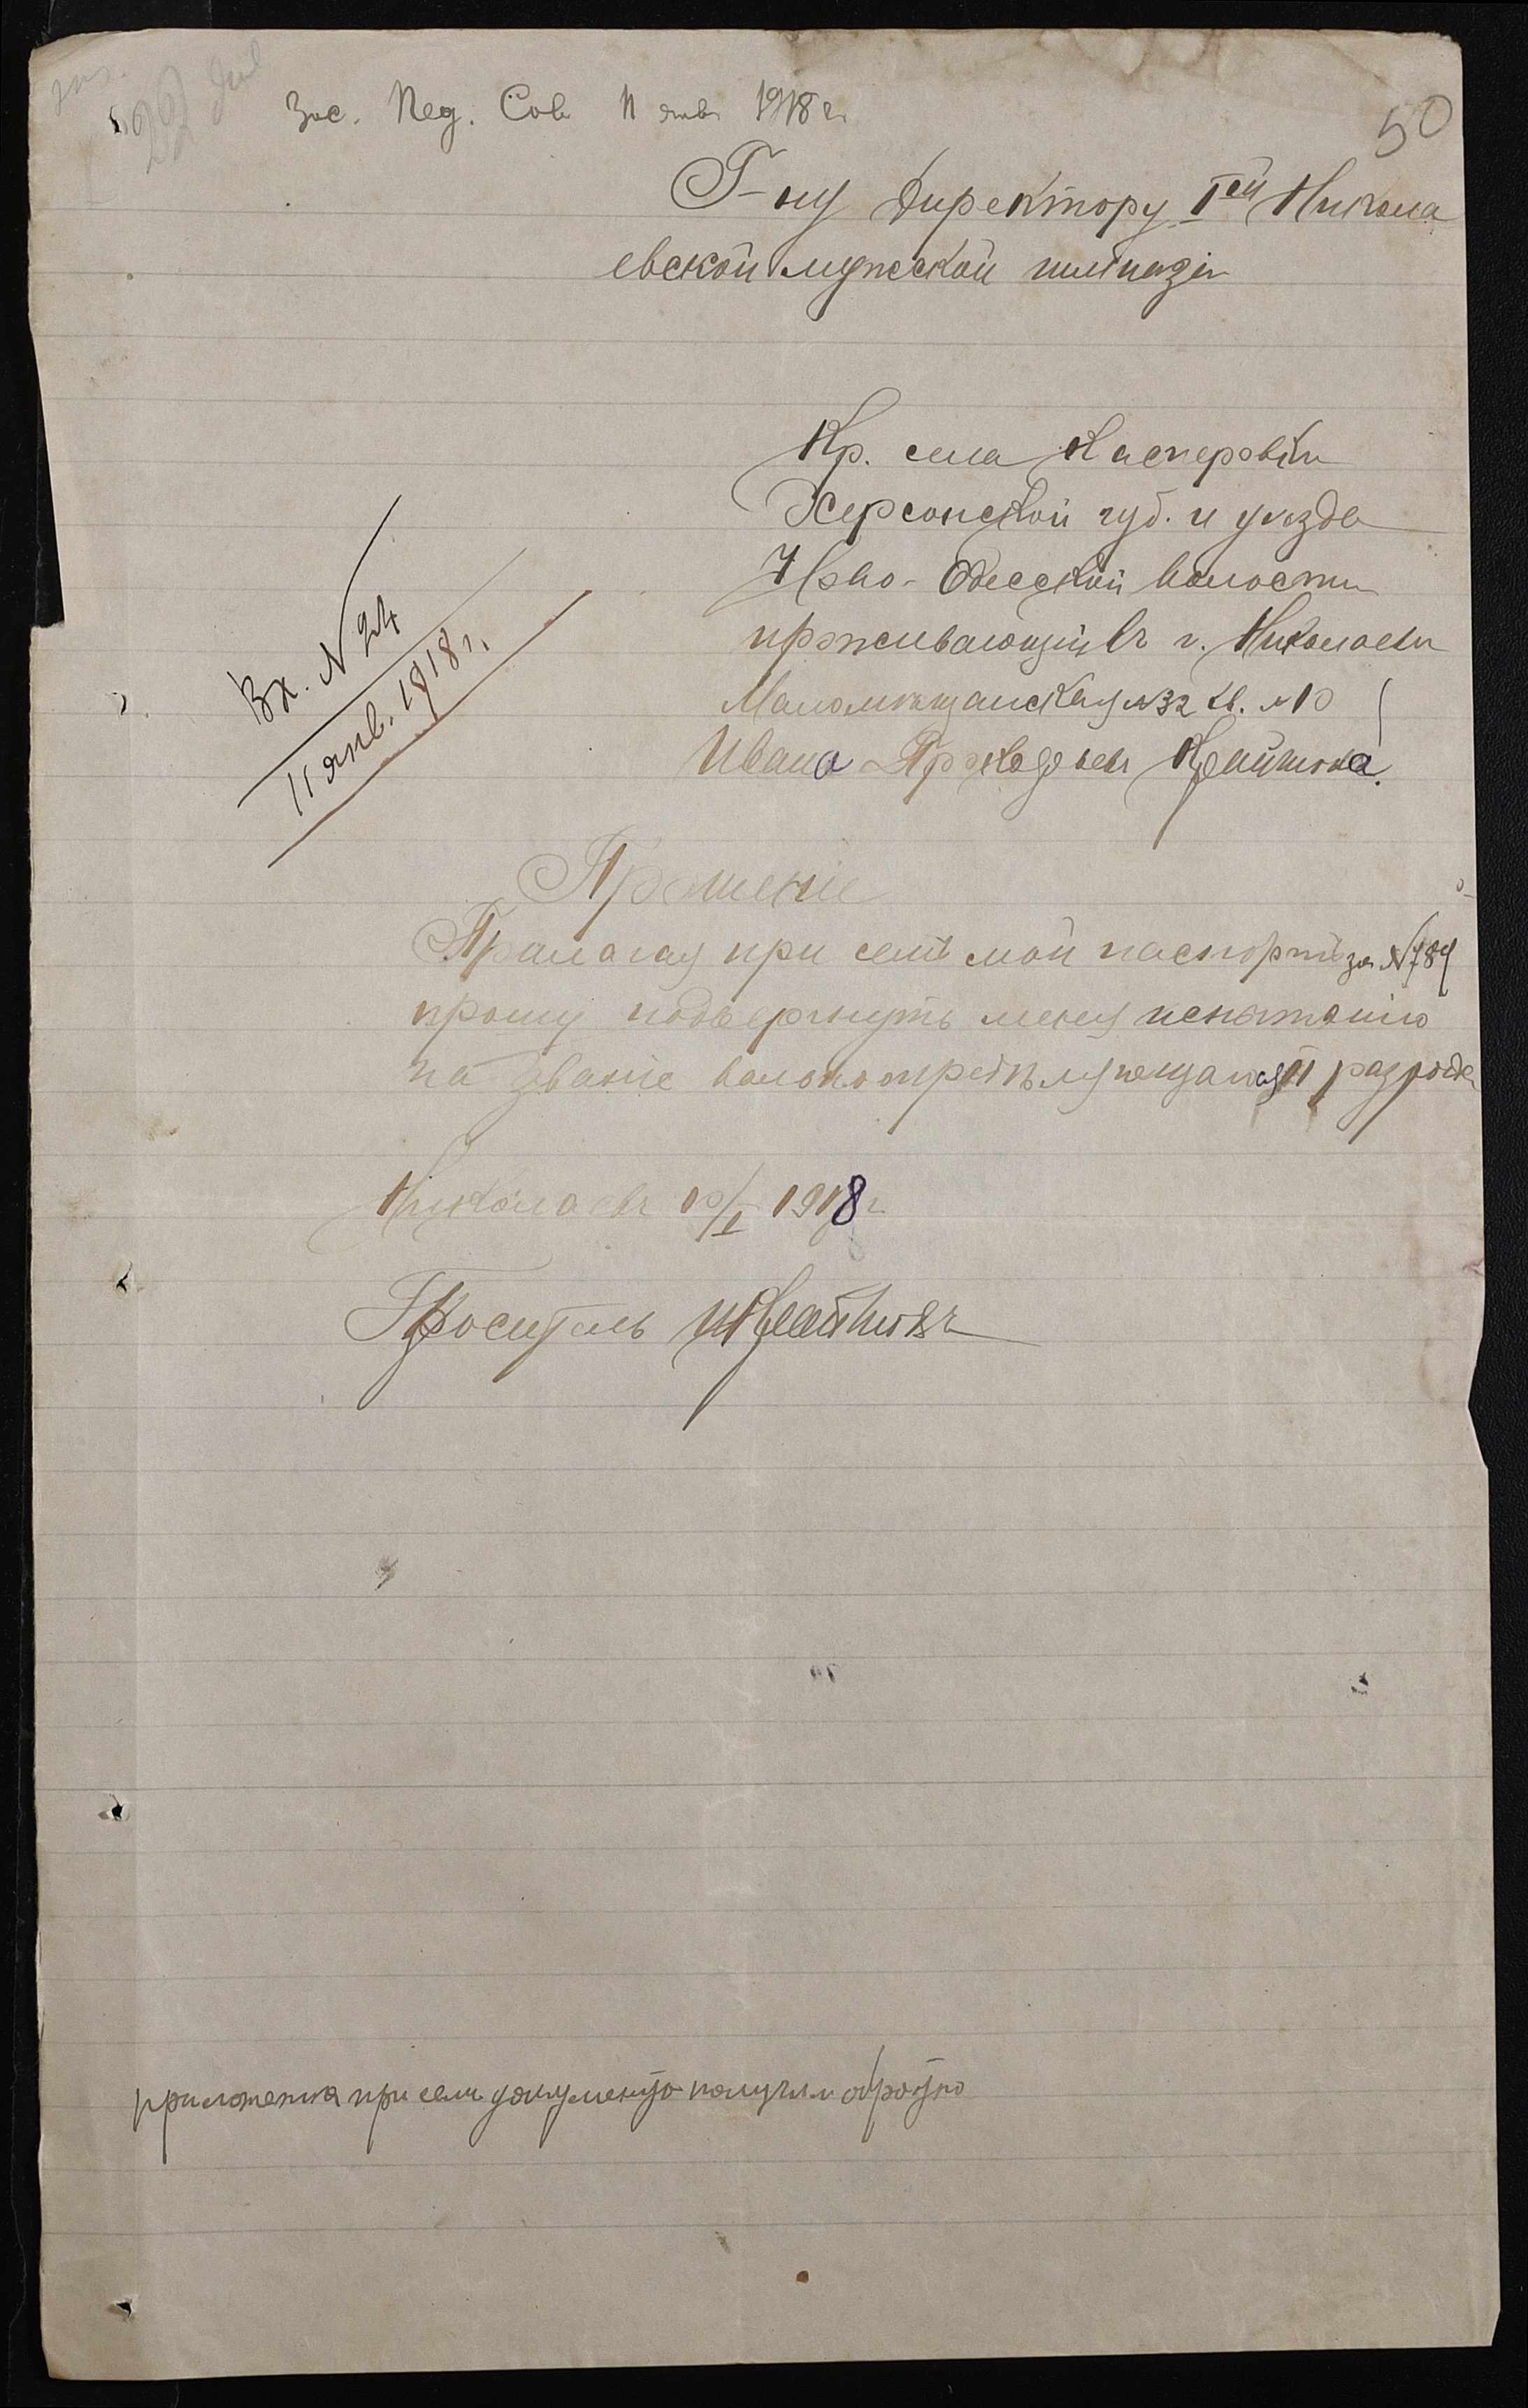 Зас. Пед. Сов 11 янв. 1918 г.
50
Г-ну Директору Iей Никола
евской мужской гимназіи
Кр. села Касперовки
Херсонской губ. и уѣзда
Ново-Одесской волости
проживающій въ г. Николаевѣ
Маломѣщанская № 32 кв. № 10
Ивана
Вх. N 24
11 янв. 1918 г.
Прошеніе
Прилагая при семъ мой паспортъ за №784
прошу подвергнуть меня испытанію
на званіе вольноопредѣляющагося II разряда
Николаевъ 10/I 1918 г
Проситель
приложенія при семъ документъ получил обратно